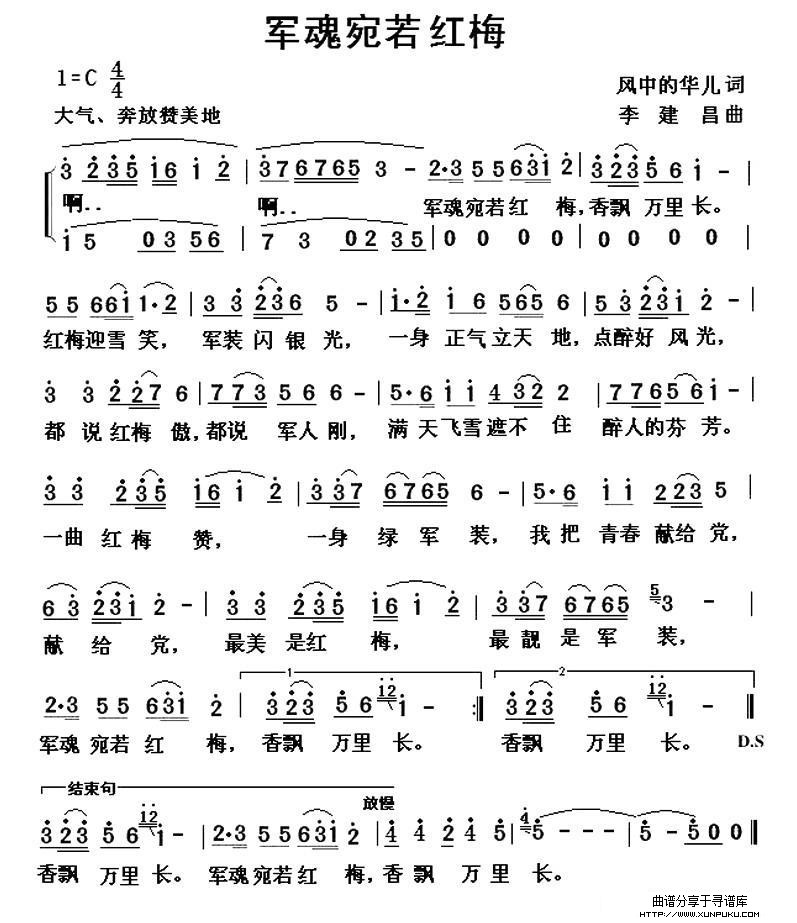 军魂宛若红梅
1=C 4/4
风中的华儿 词
大气、奔放赞美地
李建昌 曲
3 2 3 5 1 6 1 2 | 3 7 6 7 6 5 3 - | 2·3 5 5 6 3 1 2 | 3 2 3 5 6 1 - |
啊.. 啊.. 军魂宛若红 梅,香飘 万里长。
1 5 0 3 5 6 | 7 3 0 2 3 5 | 0 0 0 0 | 0 0 0 0 |
5 5 6 6 1 1·2 | 3 3 2 3 6 5 - | 1·2 1 6 5 6 5 6 | 5 3 2 3 1 2 - |
红梅迎雪 笑, 军装 闪 银 光, 一身 正气立天 地,点醉好 风光,
3 3 2 2 7 6 | 7 7 3 5 5 5 - | 5·6 1 1 4 3 2 2 | 7 7 6 5 6 1 - |
都 说 红梅 傲,都说 军人 刚, 满 天飞雪遮不 住 醉人的芬 芳。
3 3 2 3 5 1 6 1 2 | 3 3 7 6 7 6 5 6 - | 5·6 1 1 2 2 3 5 |
一曲 红 梅 赞, 一身 绿 军 装, 我 把 青春 献给 党,
6 3 2 3 1 2 - | 3 3 2 3 5 1 6 1 2 | 3 3 7 6 7 6 5 5 3 - |
献 给 党, 最美 是红 梅, 最 靓 是 军 装,
1 2
2·3 5 5 6 3 1 2 | 3 2 3 5 6 1 2 1 - :‖ 3 2 3 5 6 1 2 1 - ‖
军魂 宛若 红 梅, 香飘 万里 长。 香飘 万里 长。 D.S
结束句 放慢
3 2 3 5 6 1 2 1 - | 2·3 5 5 6 3 1 2 | 4 4 2 4 5 | 4 5 - - - | 5 - 5 0 0 ‖
香飘 万里 长。 军魂宛若 红 梅,香飘 万 里 长。
曲谱分享于寻谱库
HTTP://WWW.XUNPUKU.COM